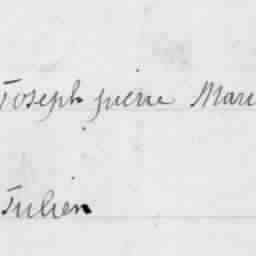 Joseph pierre Marie
Julien